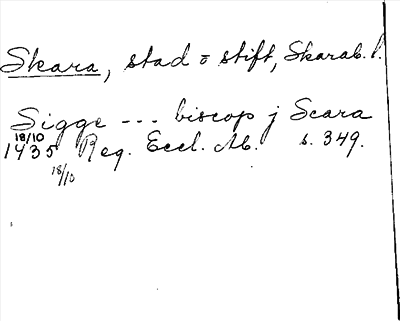 Skara, stad o stift, Skarab. l.
Sigge --- biscop j Scara
18/10
1435 Reg. Eccl. Ab. s. 349.
18/10